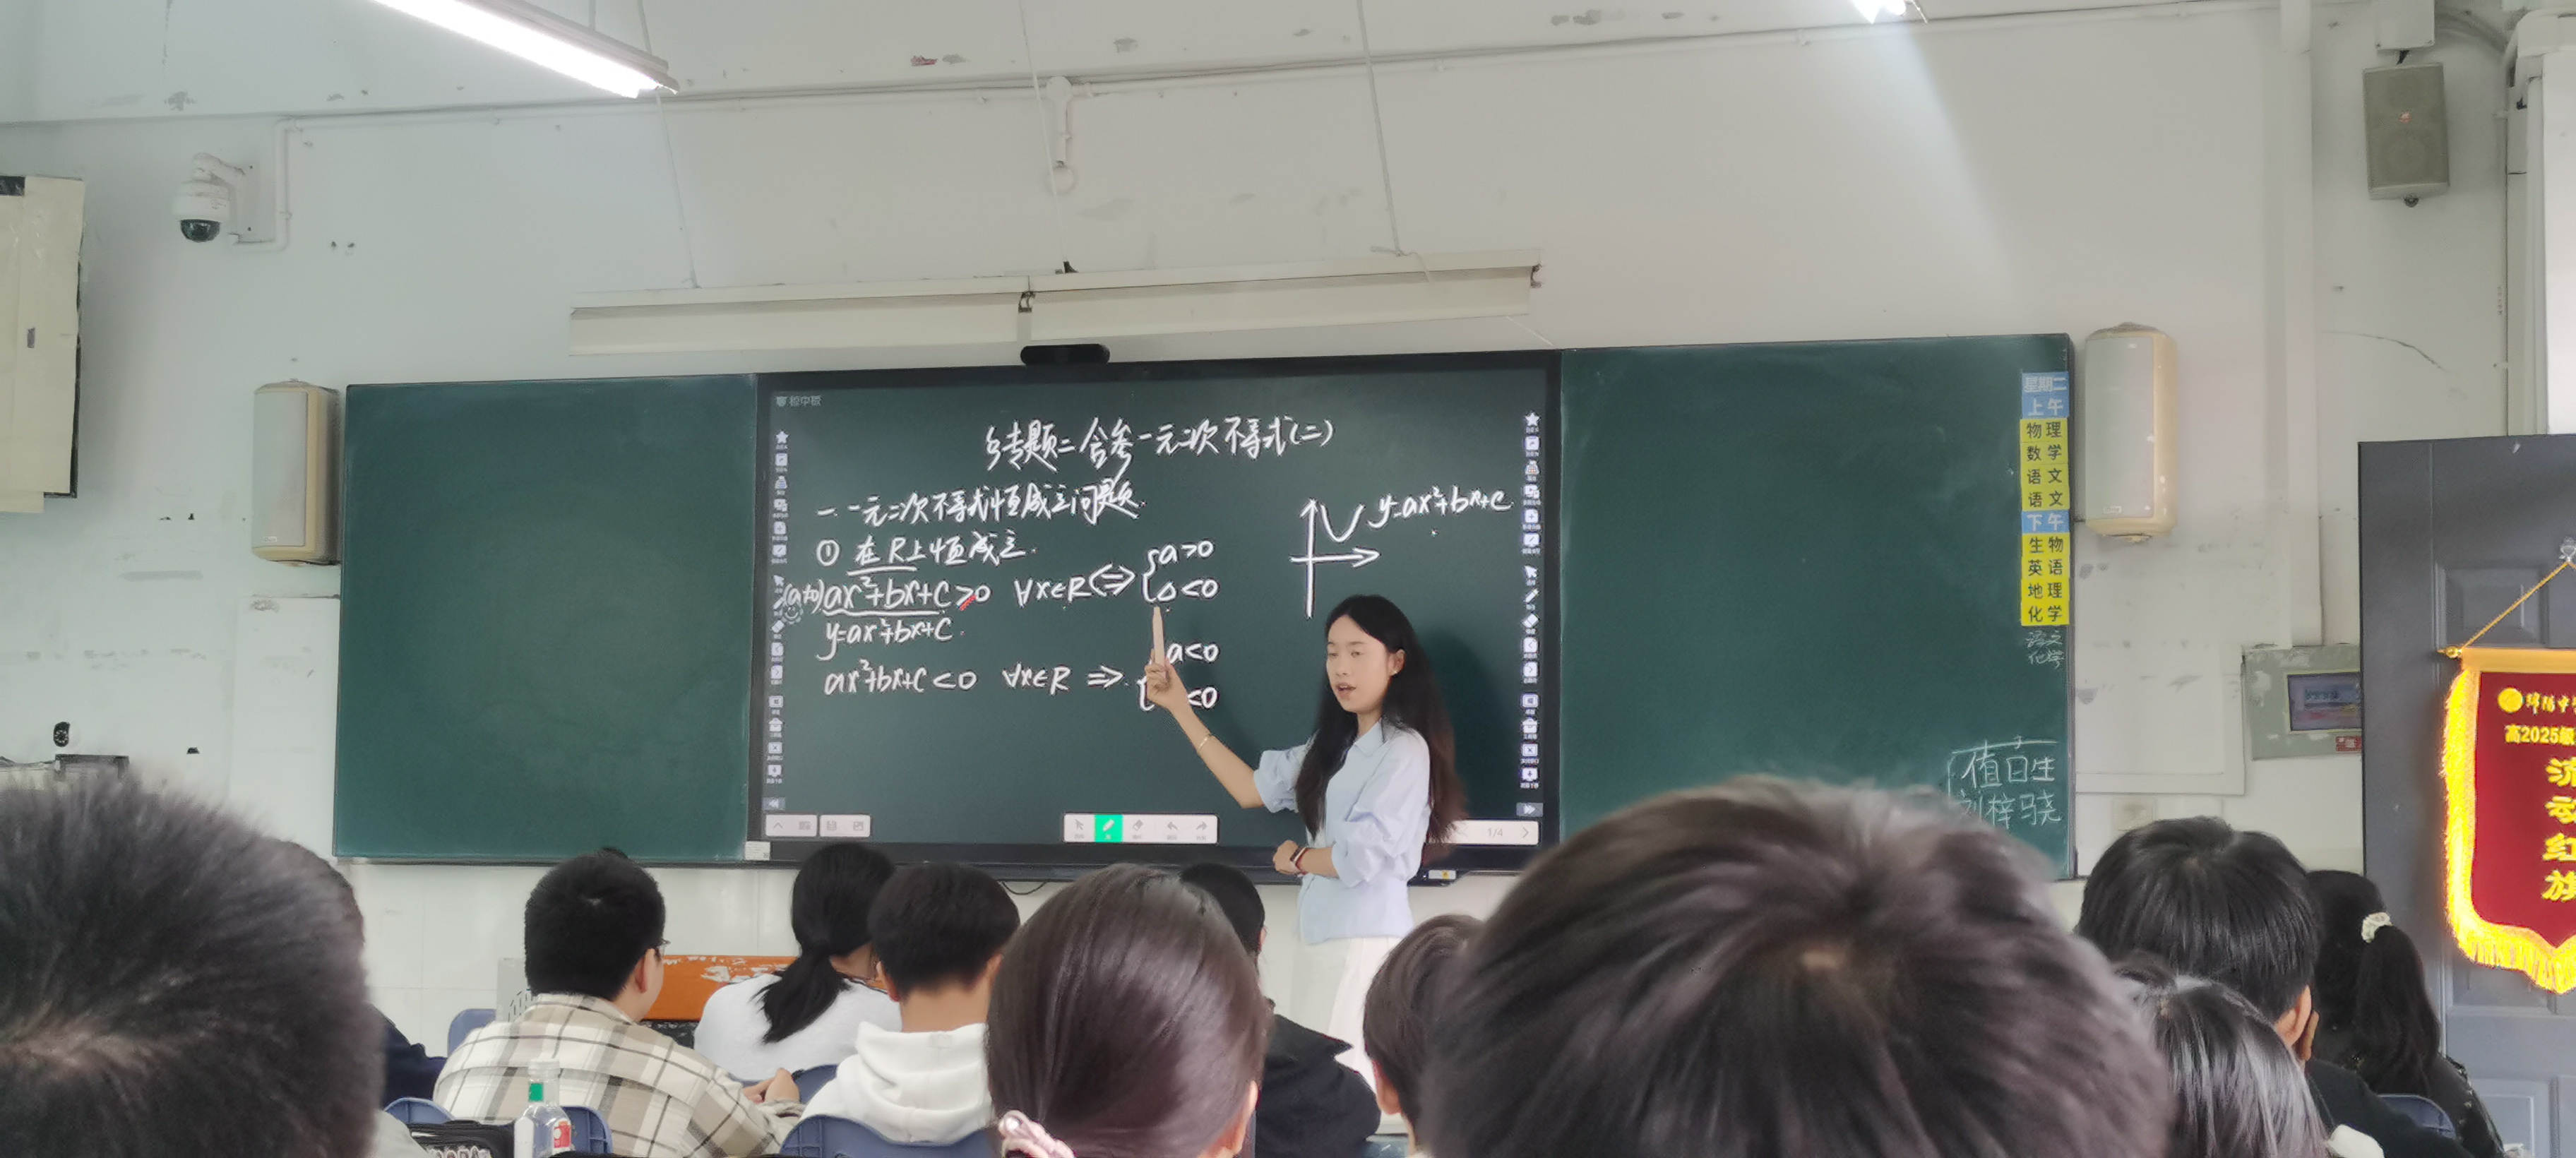 §专题二 含参一元二次不等式(二)
一. 一元二次不等式恒成立问题.
① 在R上恒成立.
(a≠0) ax²+bx+c>0 ∀x∈R ⇔ { a>0
△<0
y=ax²+bx+c.
ax²+bx+c<0 ∀x∈R ⇒ { a<0
<0
y=ax²+bx+c
1/4
星期二
上午
物理
数学
语文
语文
下午
生物
英语
地理
化学
语文
化学
值日生
刘梓骁
绵阳中学
高2025级
流
动
红
旗